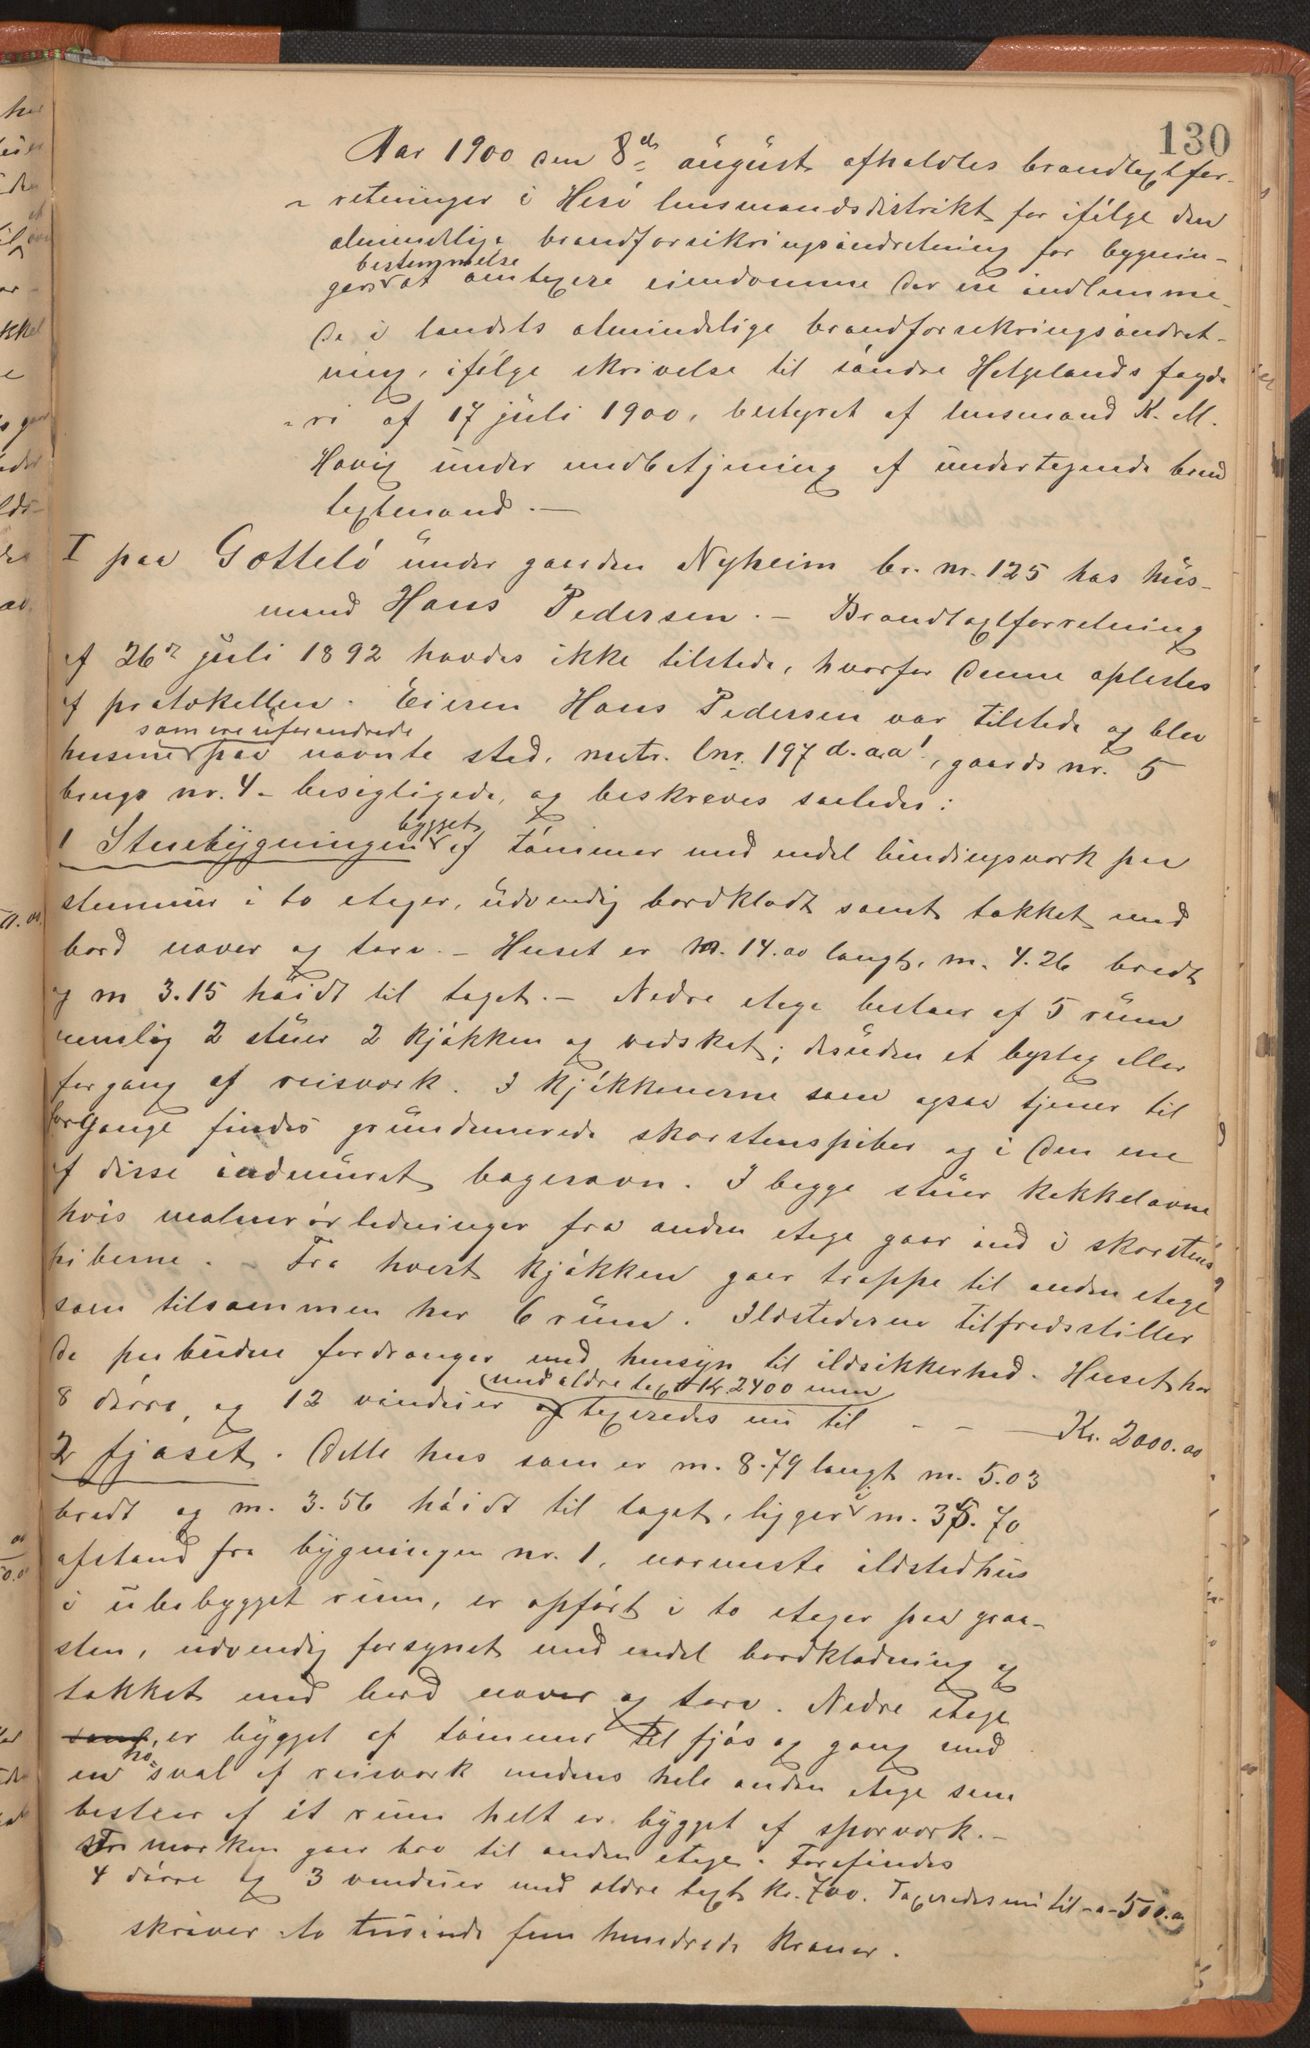 130
Aar 1900 den 8de august afholdtes brandtaxtfor-
-retninger i Herö lensmandsdistrikt for ifölge den
almindelige brandforsikringsindretning for bygnin-
bestemmelse
gers at omtaxere eiendomme der ere indlemme-
de i landets almindelige brandforsikringsindret-
ning, ifölge skrivelse til söndre Helgelands fogde
-ri af 17 juli 1900, bestyret af lensmand K. M.
Havig under medbetjening af undertegnede brand
taxtmænd. —
I paa Gotteló under gaarden Nyheim br. nr. 125 hos hus-
mand Hans Pedersen. — Brandtaxtforretning
af 26de juli 1892 havdes ikke tilstede, hvorfor denne oplestes
af protokollen. Eieren Hans Pedersen var tilstede og blev
som ere uforandrede
husene paa nævnte sted, matr. lnr. 197 d. aa', gaards nr. 5
brugs nr. 4 - besigtigede, og beskreves saaledes:
bygget
1 Stuebygningen af tömmer med endel bindingsverk paa
stenmur i to etager, udvendig bordklædt samt tækket med
bord næver og torv. — Huset er m. 14.00 langt, m. 4.26 bredt
og m 3.15 höidt til taget. — Nedre etage bestaar af 5 rum
nemlig 2 stuer 2 kjökken og vedskot; desuden et byslag eller
forgang af reisverk. I kjökkenerne som ogsaa tjener til
forgange findes grundmurede skorstenspiber og i den ene
af disse indmuret bagerovn. I begge stuer kakkelovne
hvis malmrörledninger fra anden etage gaar ind i skorstens
piberne. — Fra hvert kjökken gaar trappe til anden etage
som tilsammen har 6 rum. Ildstederne tilfredsstiller
de paabudne fordringer med hensyn til ildsikkerhed. Huset har
med ældre taxt Kr 2400 men
8 dörre, og 12 vinduer og taxeredes nu til — — — Kr. 2000.00
2 fjøset. Dette hus som er m. 8.79 langt m. 5.03
bredt og m. 3.56 höidt til taget, ligger i m. 35.70
afstand fra bygningen nr. 1, nærmeste ildstedhus
i ubebygget rum, er opfört i to etager paa graa-
sten, udvendig forsynet med endel bordklædning og
tækket med bord næver og torv. Nedre etage
som, er bygget af tömmer til fjös og gang med
hö-
en sval af reisverk medens hele anden etage som
bestaar af et rum helt er bygget af sporverk. —
Fra marken gaar bro til anden etage. Forefindes
4 dörre og 3 vinduer med ældre taxt kr. 700. Taxeredes nu til -"- 500.00
skriver to tusinde fem hundrede kroner.